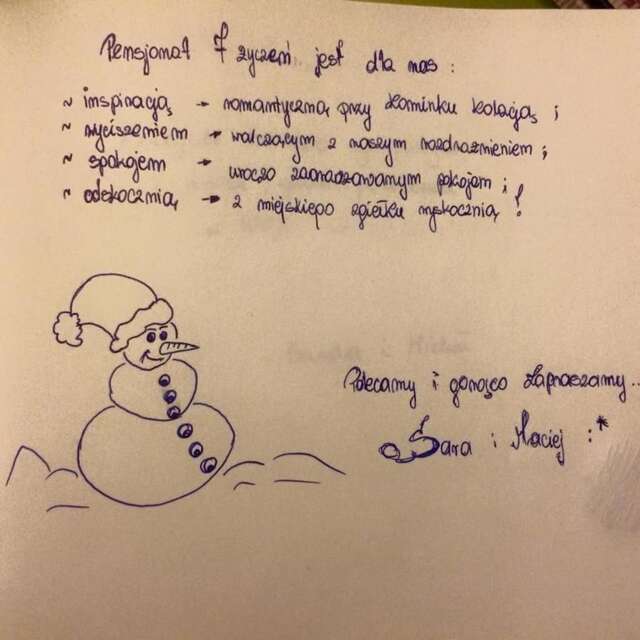 Pensjonat 7 życzeń jest dla nas:
~ inspiracją → romantyczną przy kominku kolacją;
~ wyciszeniem → walczącym z naszym rozdrażnieniem;
~ spokojem → uroczo zaaranżowanym pokojem;
~ odskocznią → z miejskiego zgiełku wyskocznią!
Polecamy i gorąco zapraszamy...
Sara i Maciej :*